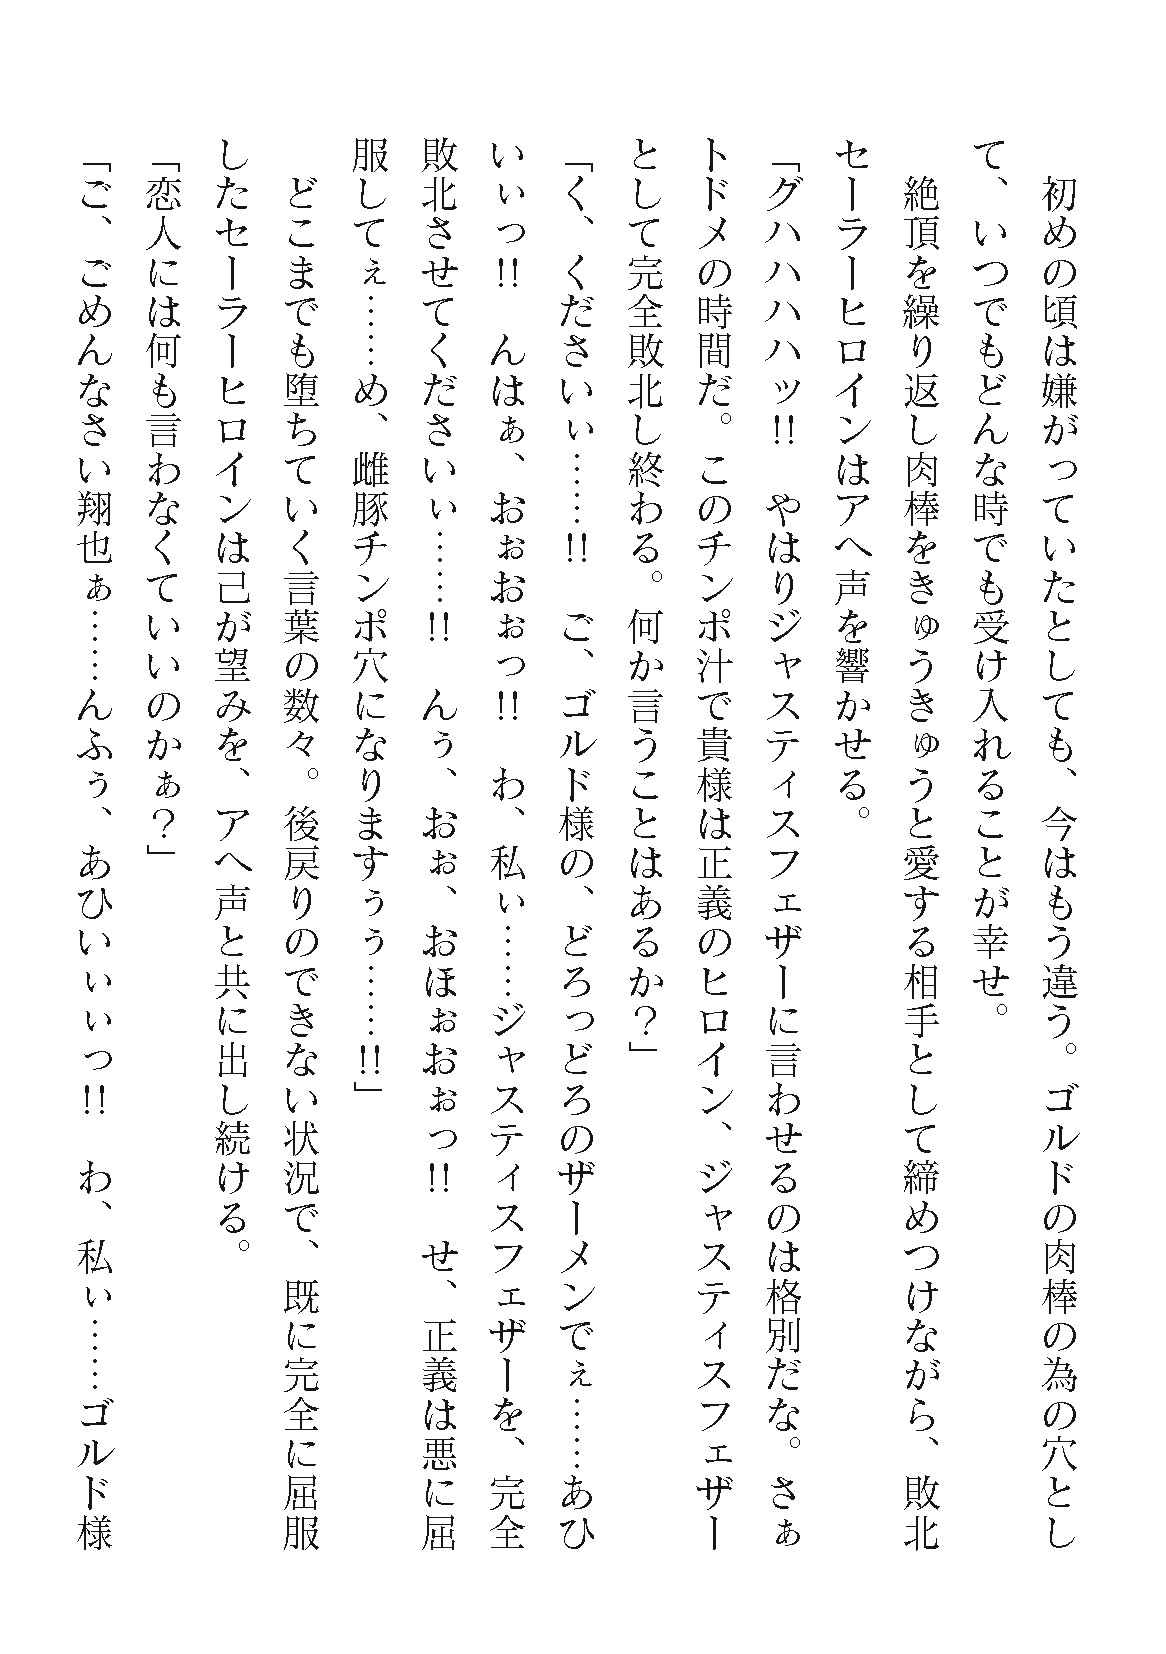 初めの頃は嫌がっていたとしても、今はもう違う。ゴルドの肉棒の為の穴とし
て、いつでもどんな時でも受け入れることが幸せ。
絶頂を繰り返し肉棒をきゅうきゅうと愛する相手として締めつけながら、敗北
セーラーヒロインはアヘ声を響かせる。
「グハハハハッ!!　やはりジャスティスフェザーに言わせるのは格別だな。さぁ
トドメの時間だ。このチンポ汁で貴様は正義のヒロイン、ジャスティスフェザー
として完全敗北し終わる。何か言うことはあるか？」
「く、くださいぃ……!!　ご、ゴルド様の、どろっどろのザーメンでぇ……あひ
いぃっ!!　んはぁ、おぉおぉっ!!　わ、私ぃ……ジャスティスフェザーを、完全
敗北させてくださいぃ……!!　んぅ、おぉ、おほぉおぉっ!!　せ、正義は悪に屈
服してぇ……め、雌豚チンポ穴になりますぅぅ……!!」
どこまでも堕ちていく言葉の数々。後戻りのできない状況で、既に完全に屈服
したセーラーヒロインは己が望みを、アヘ声と共に出し続ける。
「恋人には何も言わなくていいのかぁ？」
「ご、ごめんなさい翔也ぁ……んふぅ、あひいぃぃっ!!　わ、私ぃ……ゴルド様